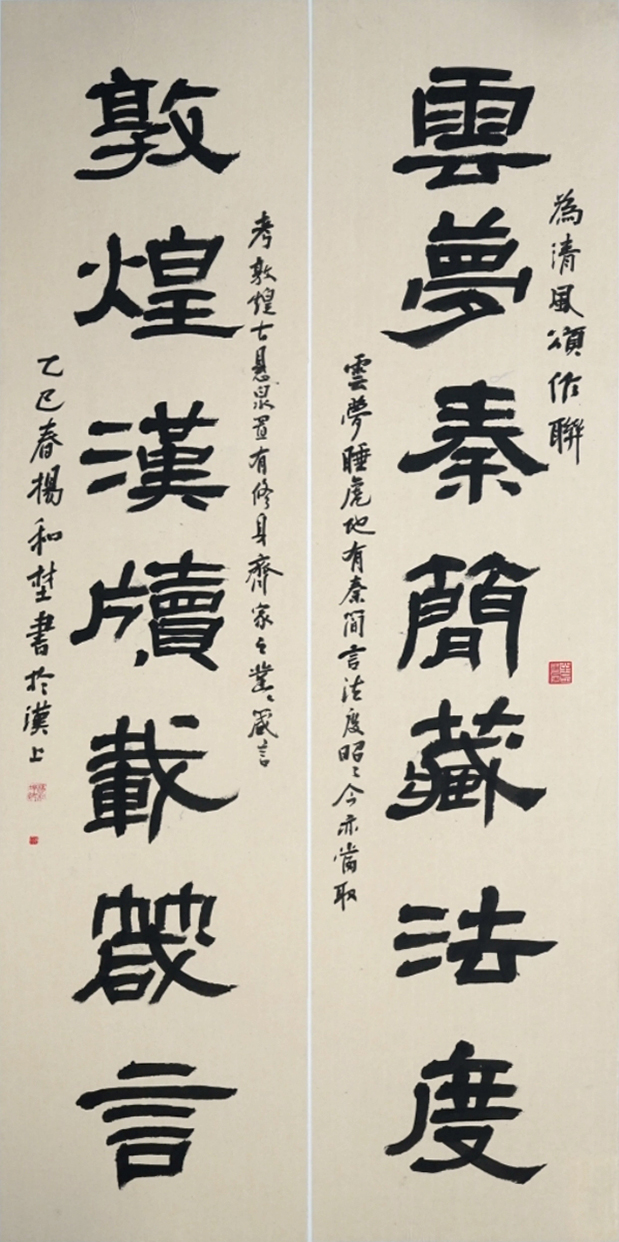 為清風頌作聯
雲夢秦簡藏法度
雲夢睡虎地有秦簡言法度昭〻今亦當取
考敦煌古懸泉置有修身齊家之業〻箴言
敦煌漢牘載箴言
乙巳春楊和埜書於漢上